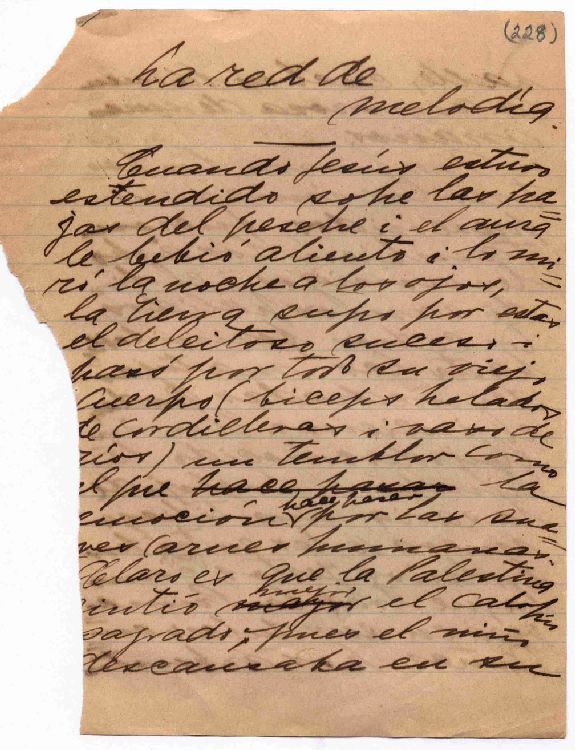 (228)
La red de
melodía.
Cuando Jesús estuvo
estendido sobre las pa=
jas del pesebre i el aura
le bebió aliento i lo mi=
ró la noche a los ojos,
la tierra supo por estas
el deleitoso suceso i
pasó por todo su viejo
cuerpo (biceps helados
de cordilleras i vasos de
ríos) un temblor como
el que hace pasar la
hace pasar
emoción por las sua=
ves carnes humanas.
Claro es que la Palestina
mejor
sintió mayor el calofrío
sagrado; pues el niño
descansaba en su